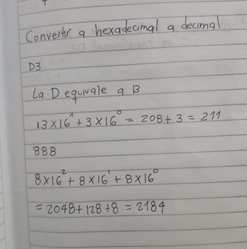 Convertir a hexadecimal a decimal
D3
La D equivale a 13
13x16¹ + 3x16⁰ = 208 + 3 = 211
888
8x16² + 8x16¹ + 8x16⁰
= 2048 + 128 + 8 = 2184